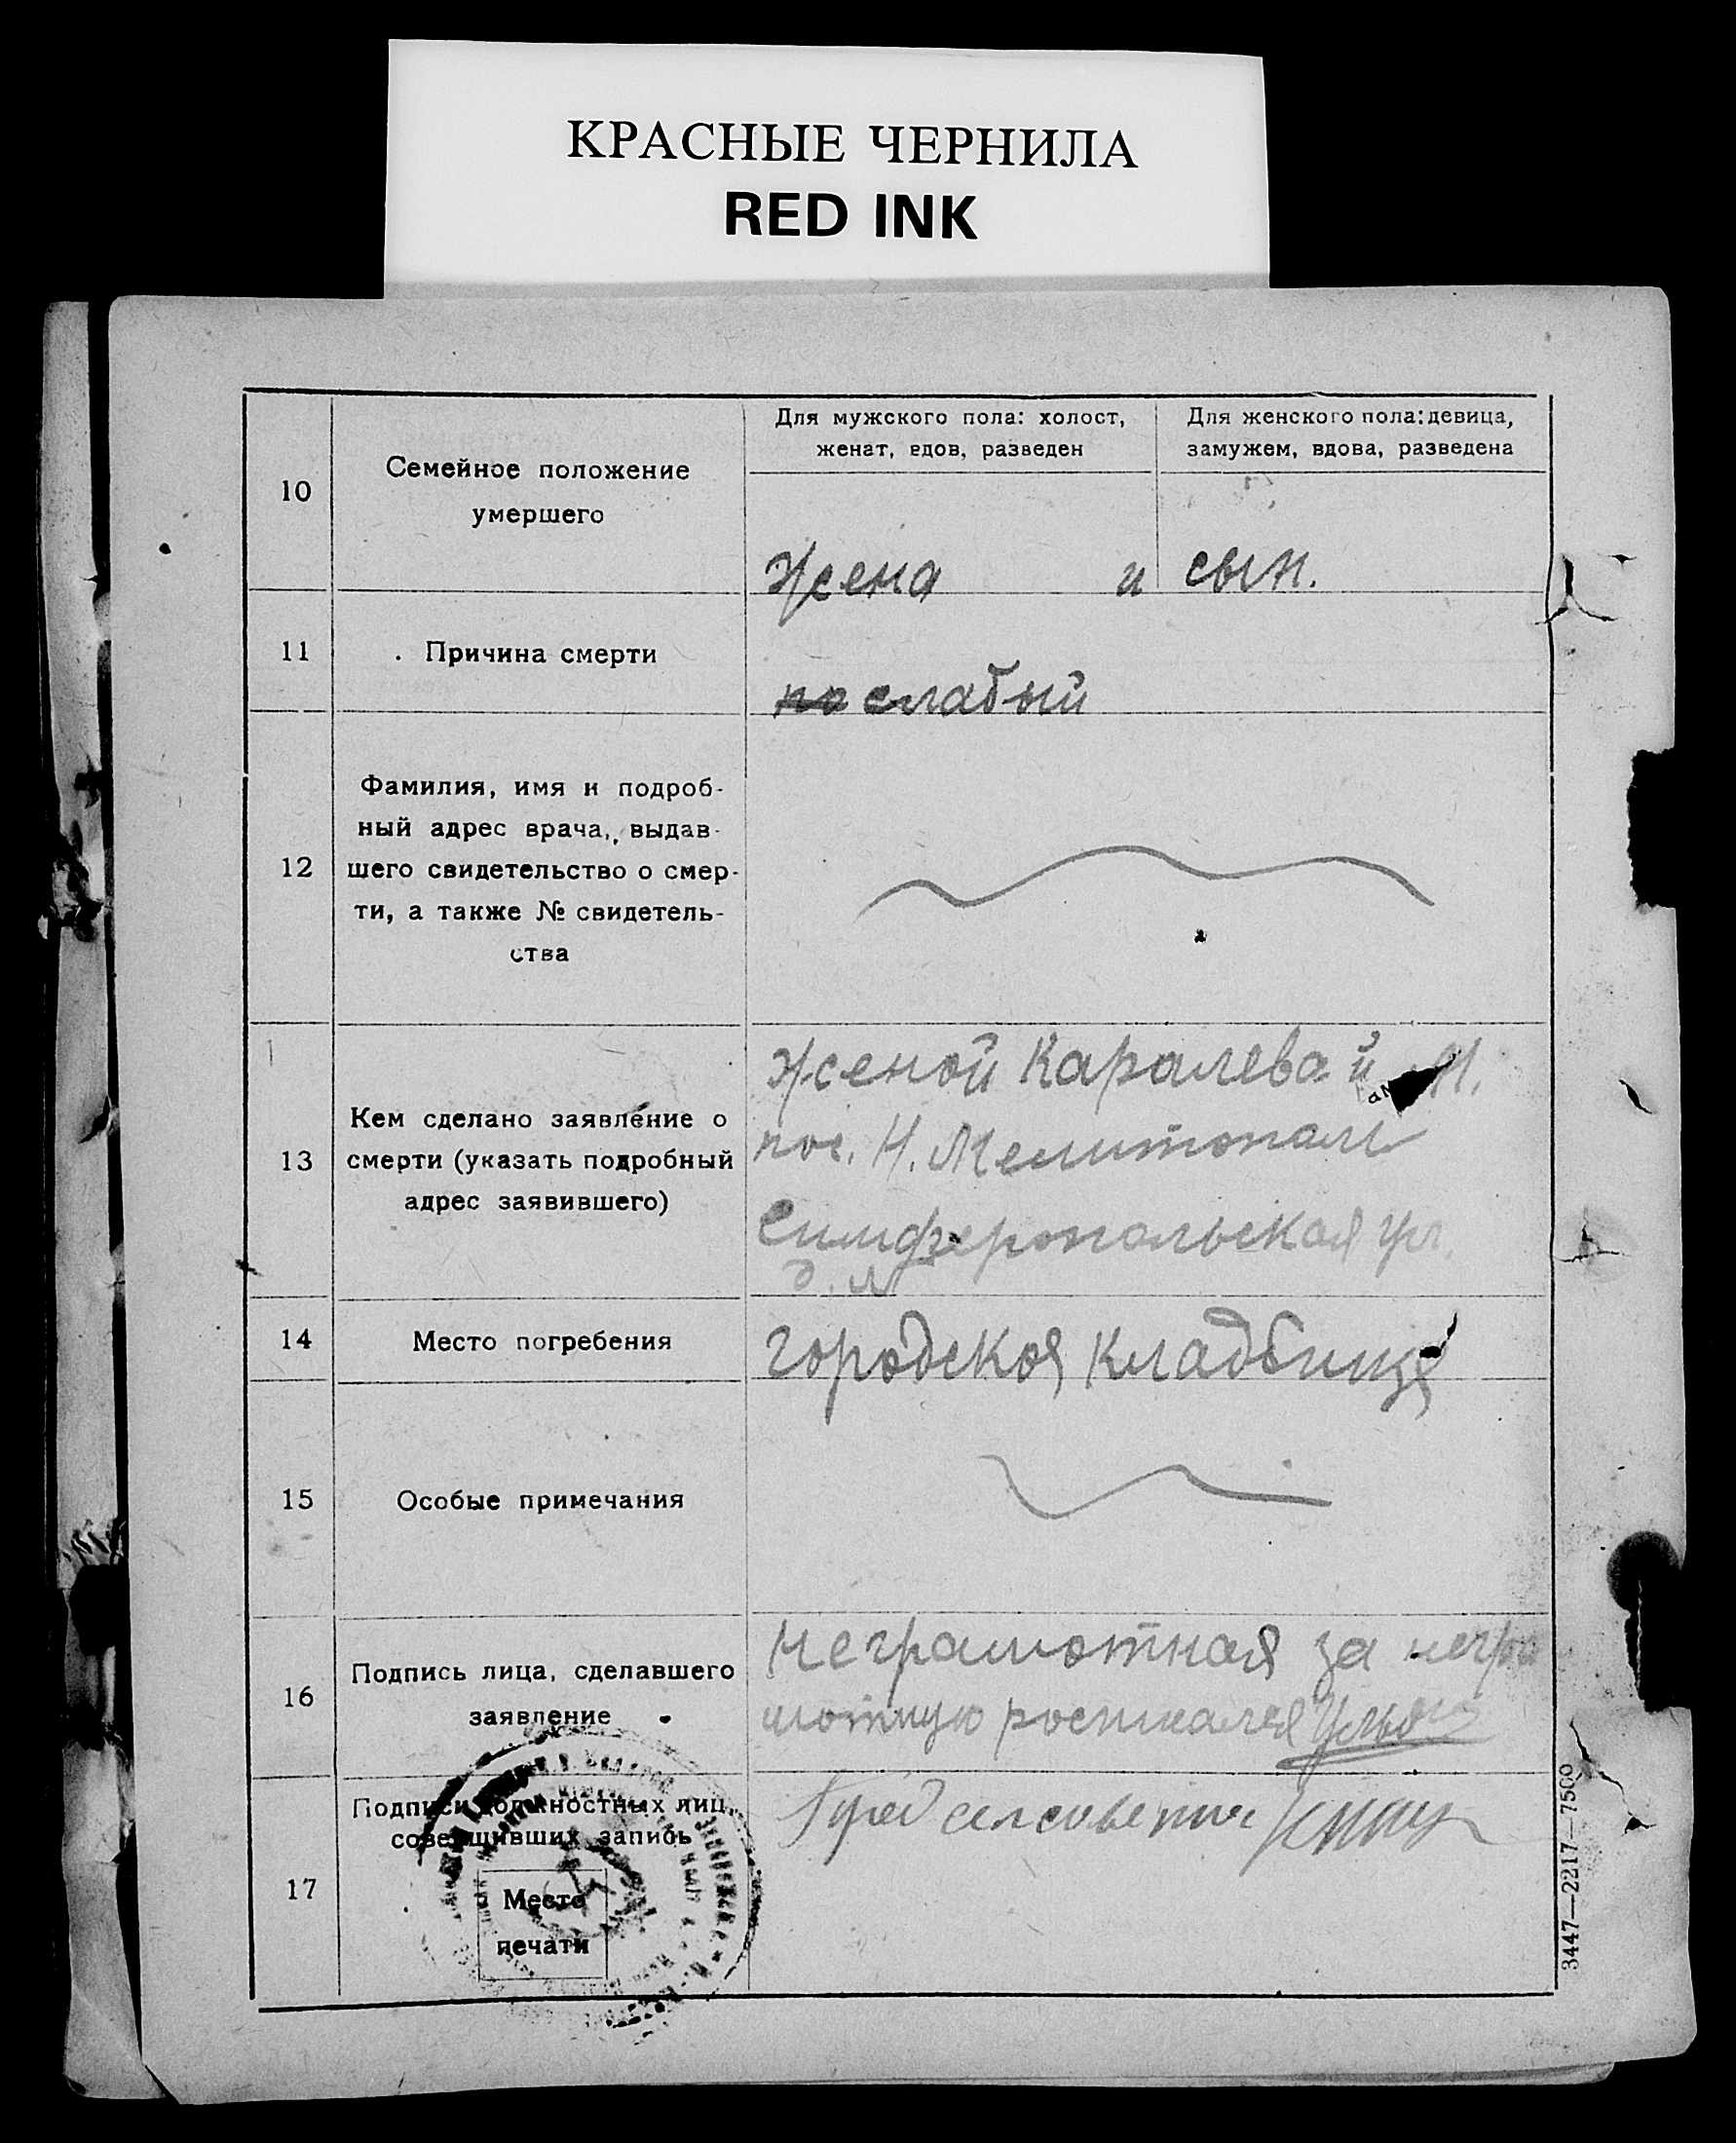 КРАСНЫЕ ЧЕРНИЛА
RED INK
10
Семейное положение
умершего
Для мужского пола: холост,
женат, вдов, разведен
Для женского пола: девица,
замужем, вдова, разведена
жена и сын.
11
Причина смерти
по слабый
12
Фамилия, имя и подроб-
ный адрес врача, выдав-
шего свидетельство о смер-
ти, а также № свидетель-
ства
13
Кем сделано заявление о
смерти (указать подробный
адрес заявившего)
женой Каралевай
пос. Н. Мелитопаль
Симферопальская ул.
д. №
14
Место погребения
городская кладбище
15
Особые примечания
16
Подпись лица, сделавшего
заявление
неграмотная за негра
мотную роспикался
17
Подписи должностных лиц,
совершивших запись
Место
печати
Пред сельсовета
3447—2217—7500